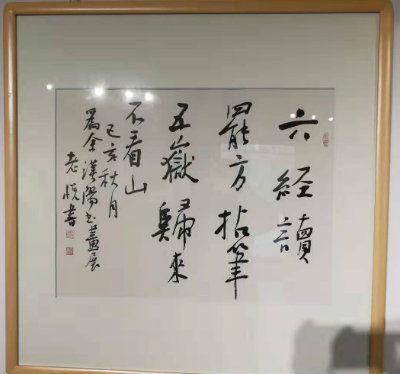 六經讀
罷方拈筆
五嶽歸來
不看山
己亥秋月
爲余漢陽书畫展
老悦書